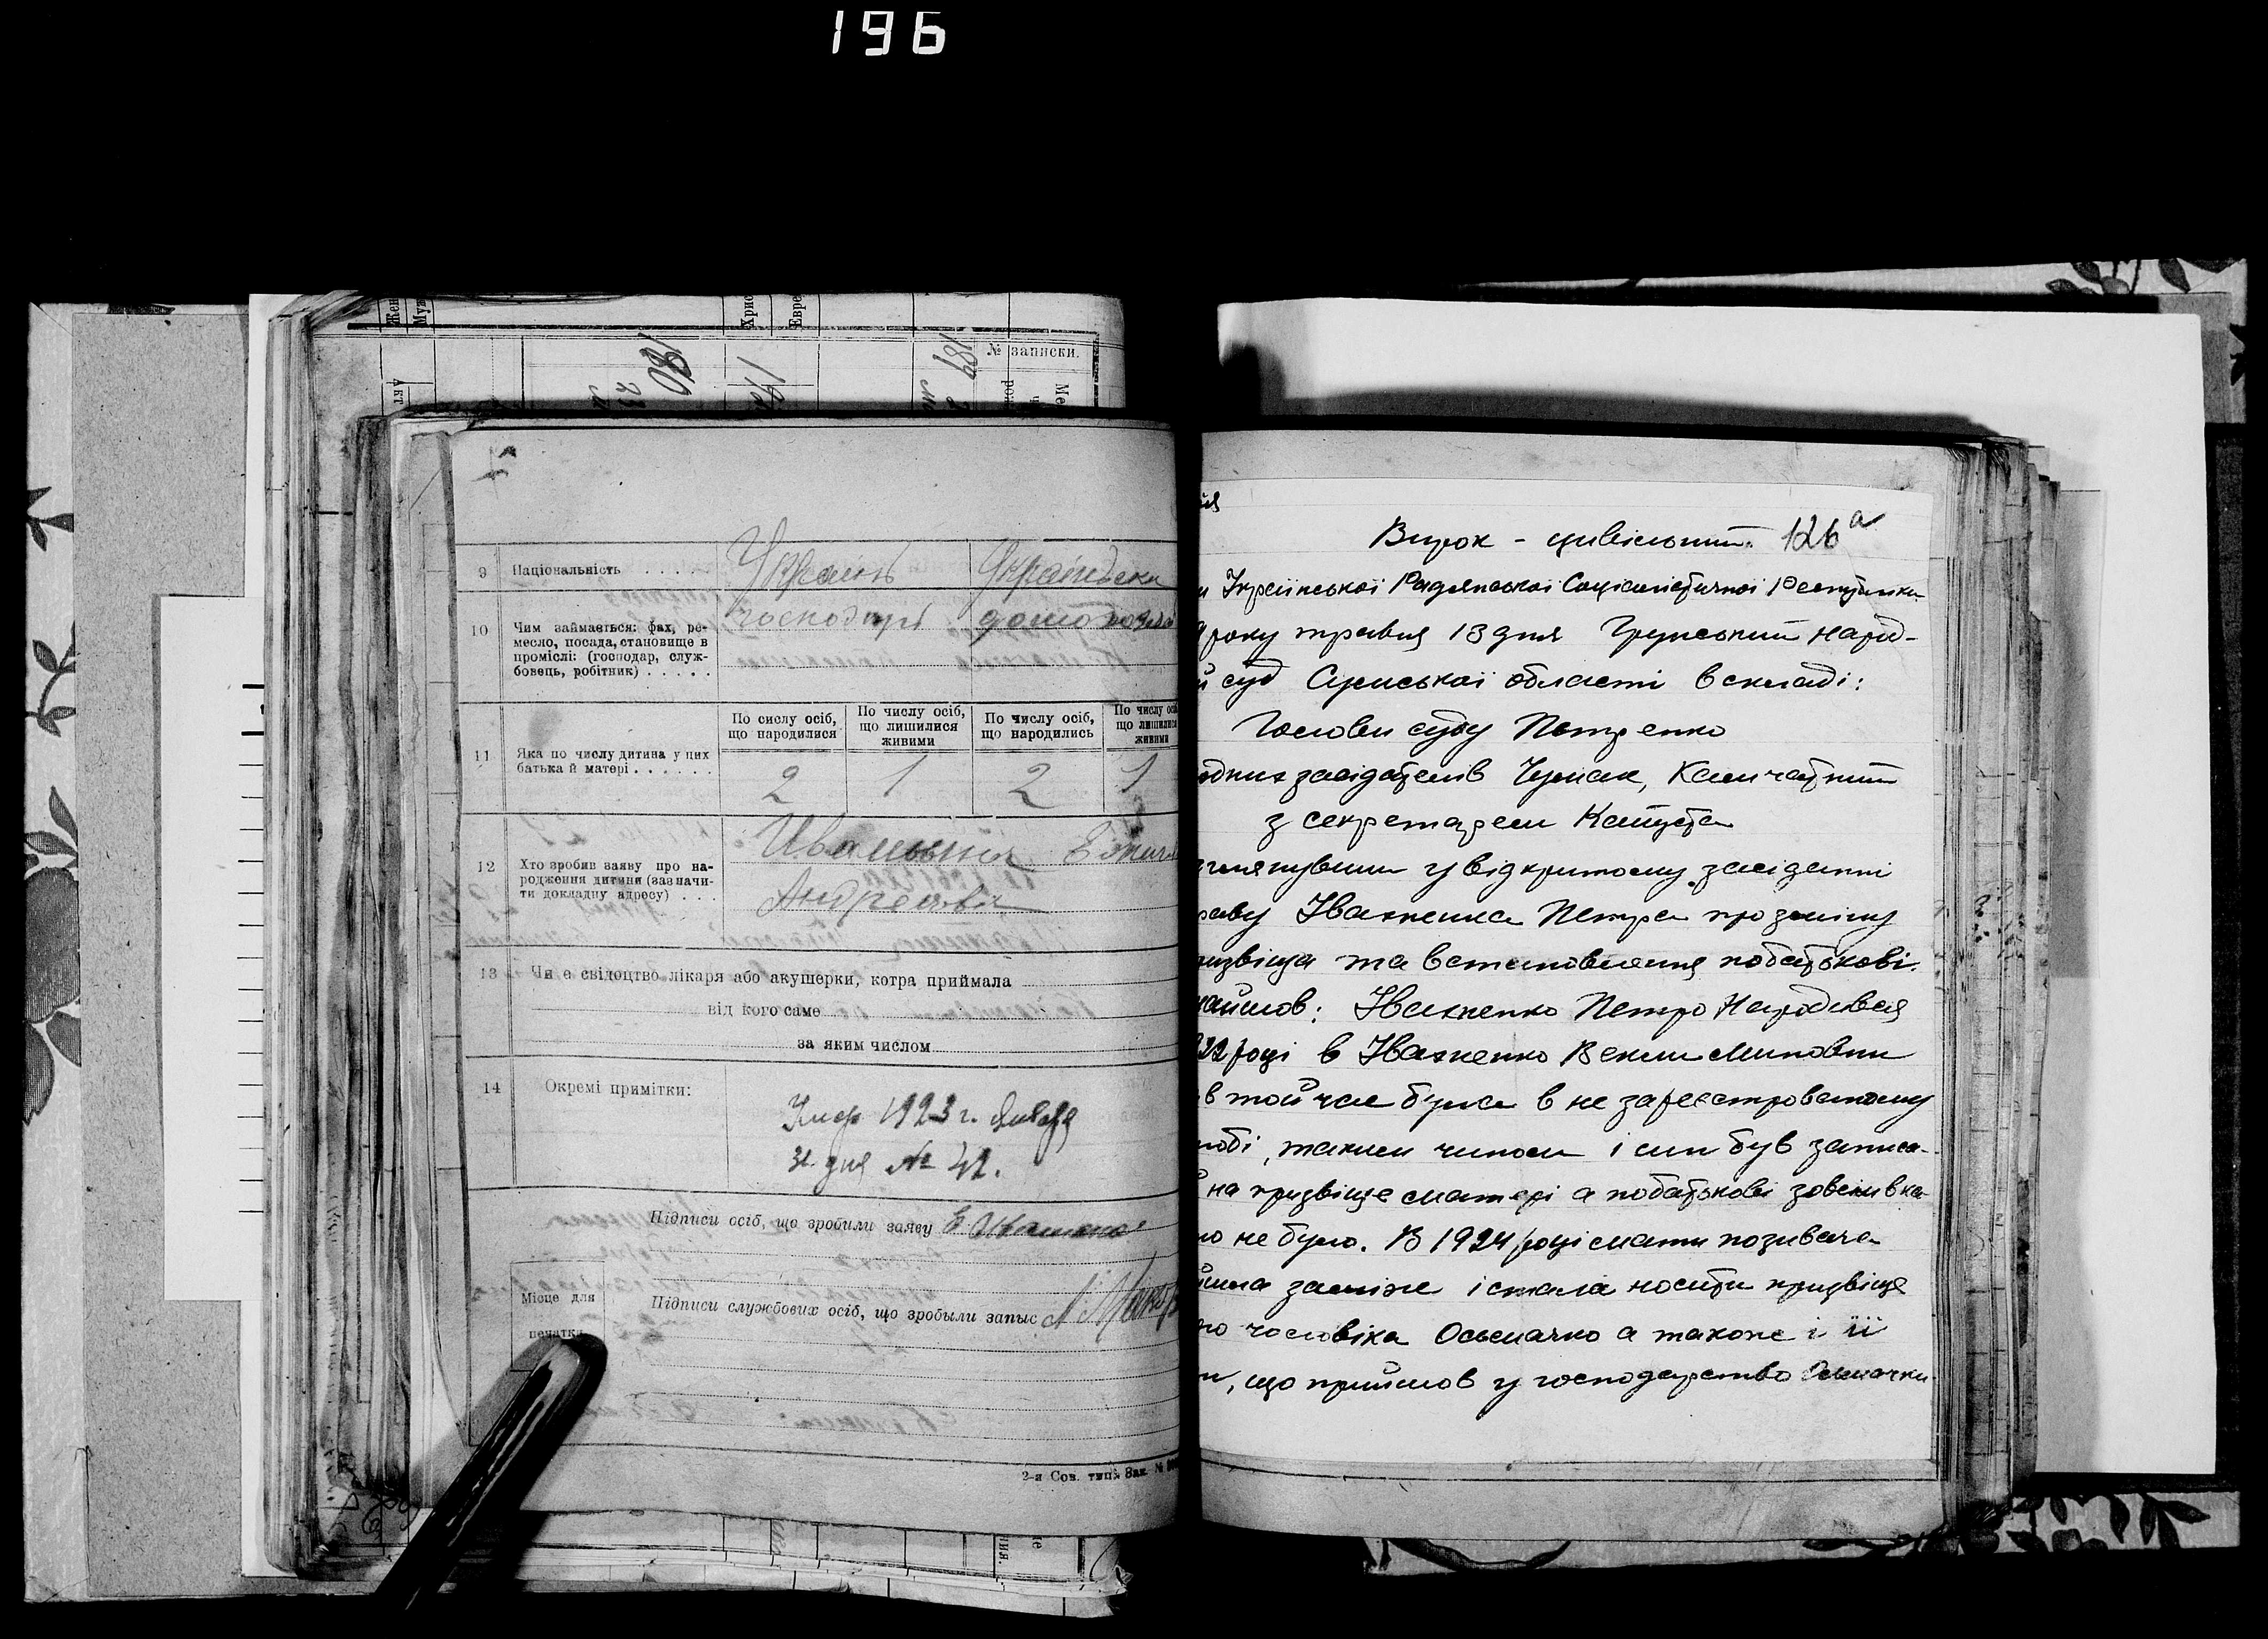 196
Жен
Муж
Хрис
Евре
180
189
№ записки.
9 Національність . . . . Украинъ Українська
10 Чим займається: фах, ре-
месло, посада, становище в
проміслі: (господар, служ-
бовець, робітник) . . . . .
господарь
По сислу осіб,
що народилися
По числу осіб,
що лишилися
живими
По числу осіб,
що народились
По числу осіб
що лишилися
живими
11 Яка по числу дитина у цих
батька й матері . . . . . .
2 1 2 1
12 Хто зробив заяву про на-
родження дитини (зазначи-
ти докладну адресу) . . .
Андреевич
13 Чи є свідоцтво лікаря або акушерки, котра приймала
від кого саме
за яким числом
14 Окремі примітки:
Умер 1923 г. Января
31 дня № 42.
Підписи осіб, що зробили заяву
Місце для
печатки
Підписи службових осіб, що зробыли запыс
2-я Сов. тип. Зак. №
Вирок - цивільний. 126 а
и Української Радянської Соціалістичної Республіки
року травня 13 дня Грунський народ-
й суд Сумської області в складі:
Голови суду Петренко
одних засідателів Чумак, Камчатний
з секретарем Капуста
глянувши у відкритому засіданні
раву Івахненка Петра про зміну
ризвіща та встановлення побатькові.
найшов: Івахненко Петро Народився
922 році в Івахненко Векли Миновни
в той час була в не зареєстрованому
любі, таким чином і син був записа-
на призвіще матері а побатькові зовсім вка-
но не було. В 1924 році мати позивача
йшла заміже і стала носити призвіще
го чоловіка Осьмачко а також і її
н, що прийшов у господарство Осьмачки